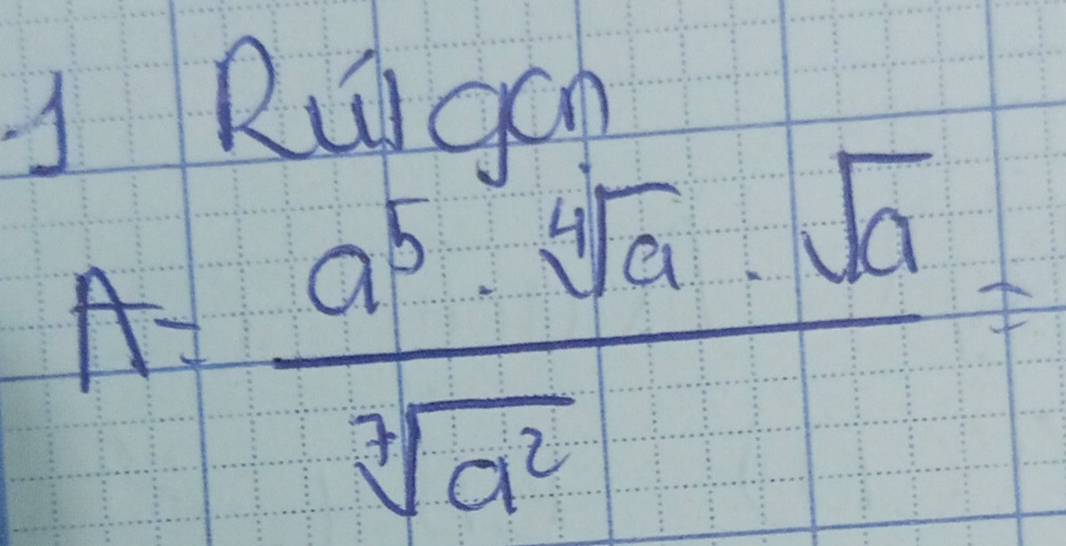 1 Rút gọn
A = \frac{a^5 \cdot \sqrt[4]{a} \cdot \sqrt{a}}{\sqrt[7]{a^2}} =